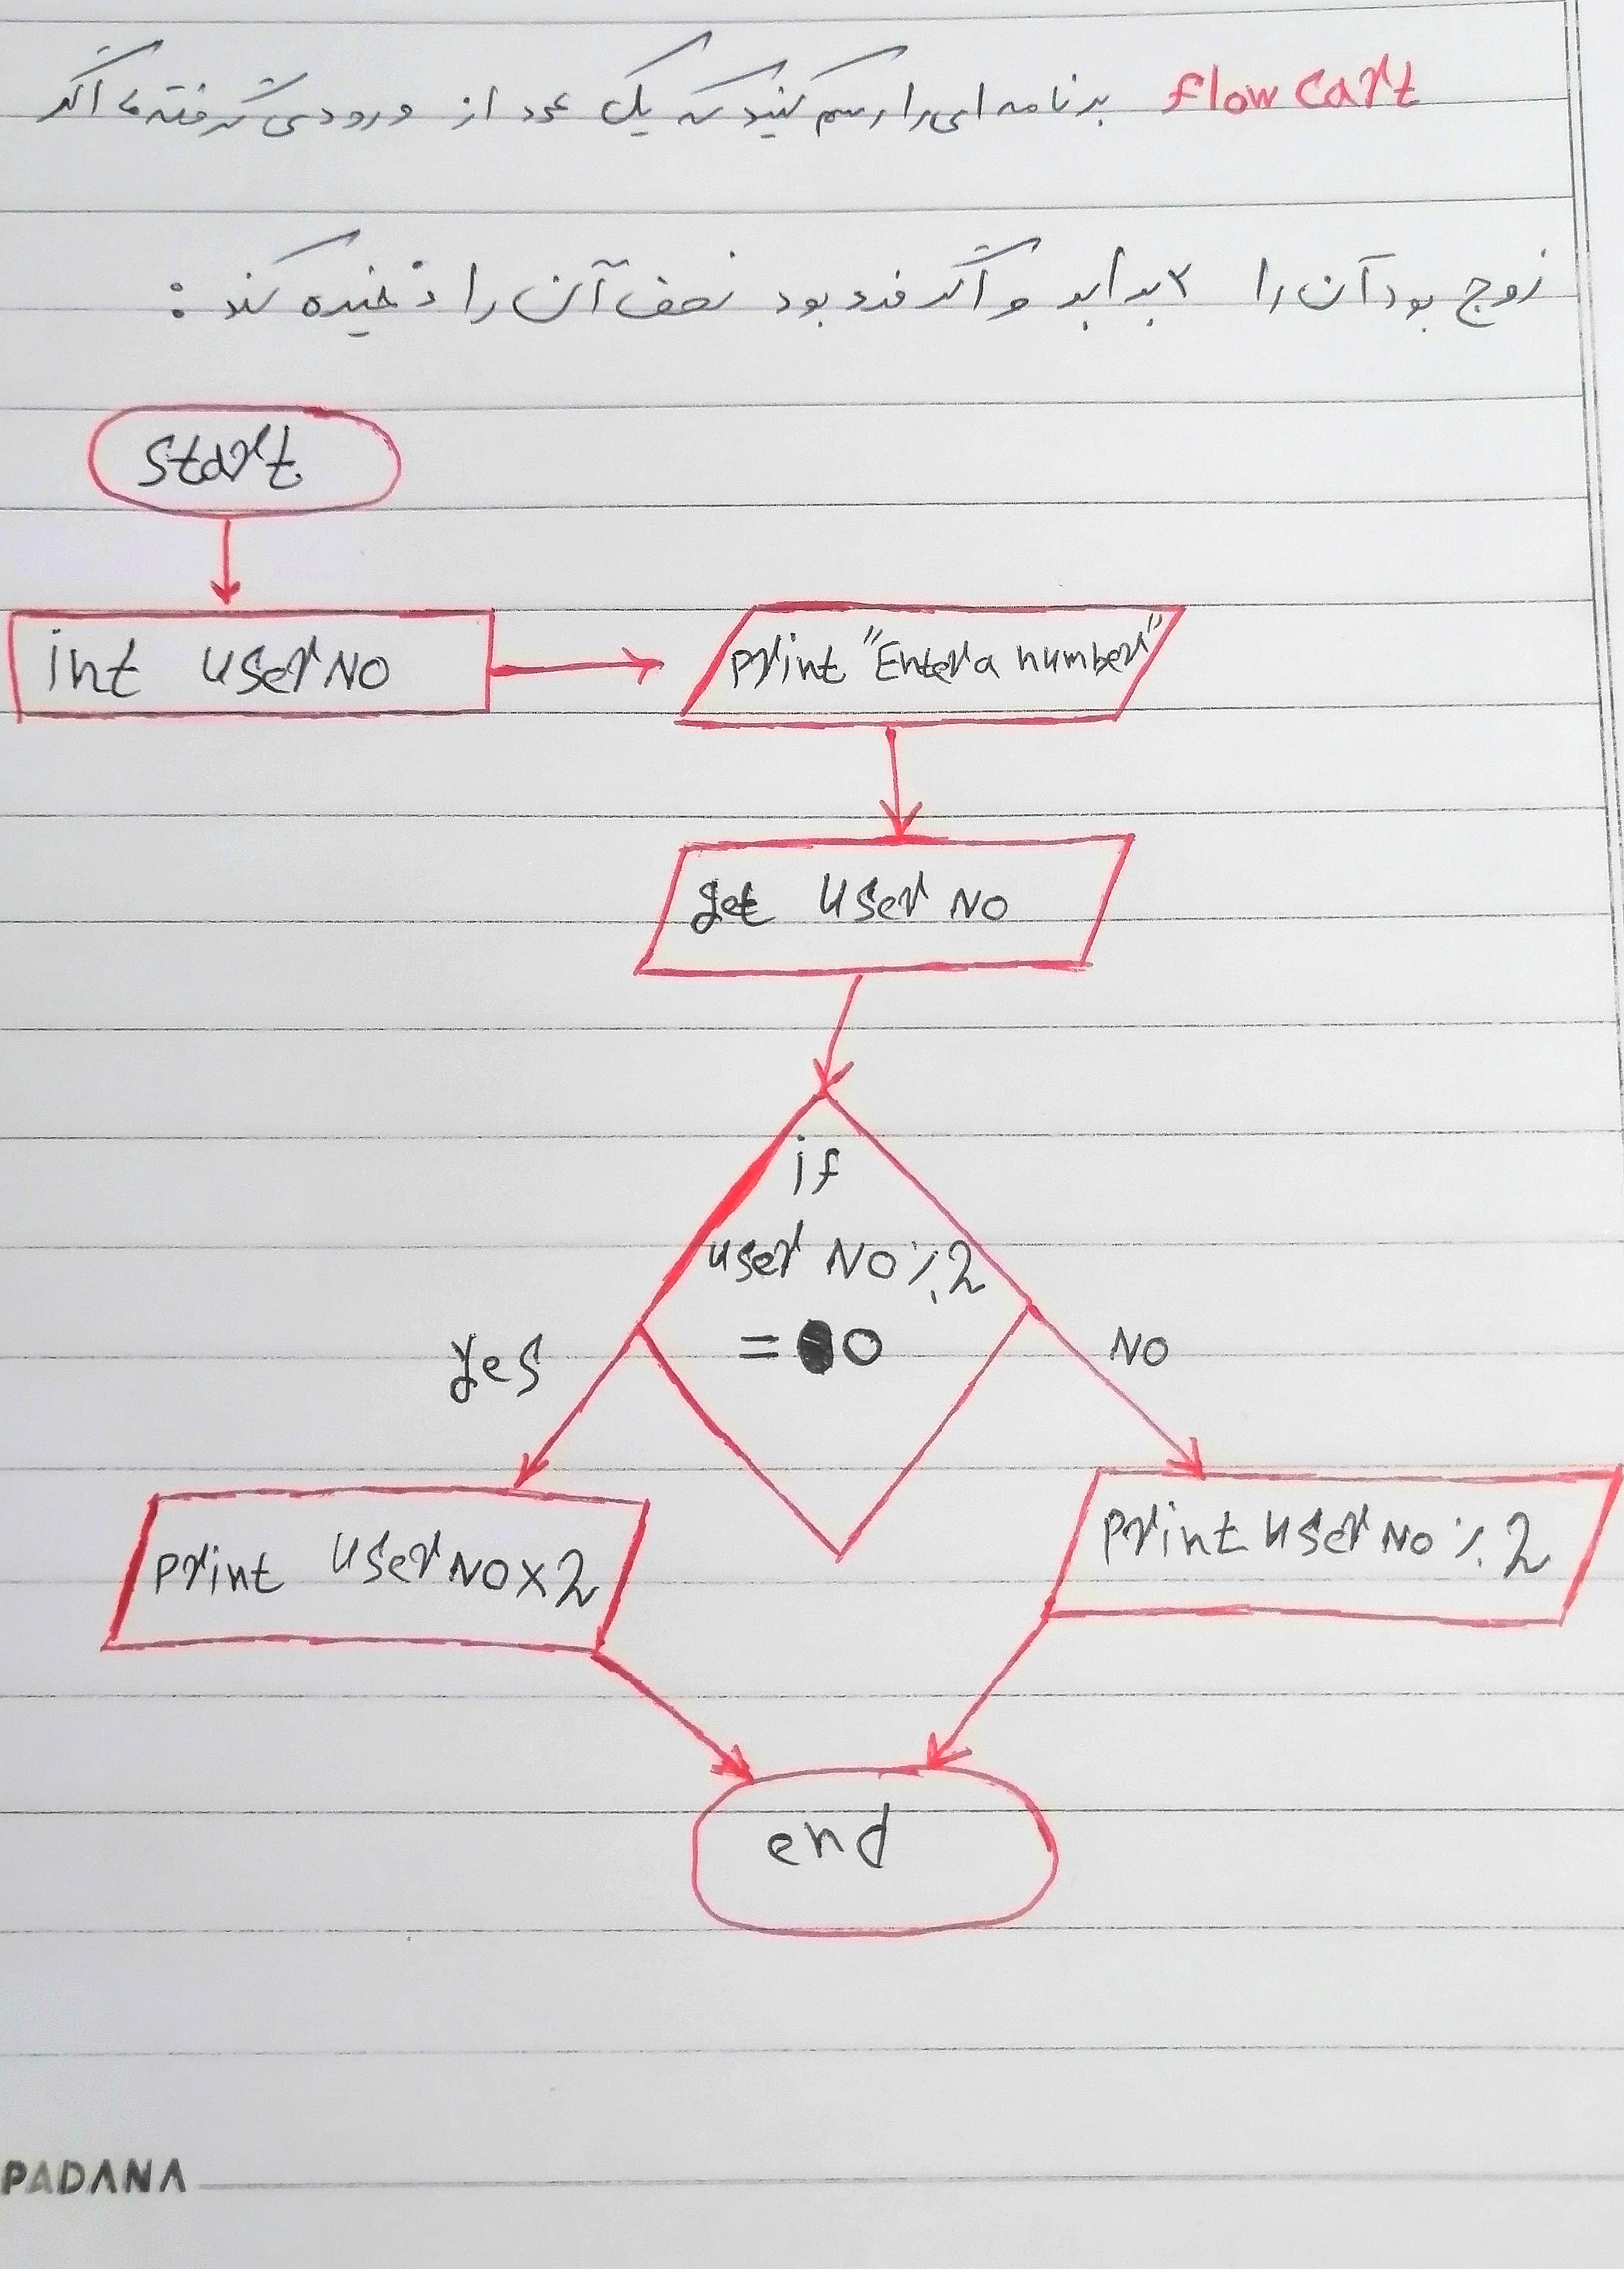 flow cart برنامه ای را رسم کنید که یک عدد از ورودی گرفته، اگر
زوج بود آن را ۲ برابر و اگر فرد بود نصف آن را ذخیره کند :
start
int userNO
print "Enter a number"
get userNO
if
userNO%2
=0
yes
NO
print userNO×2
print userNO%2
end
PADANA